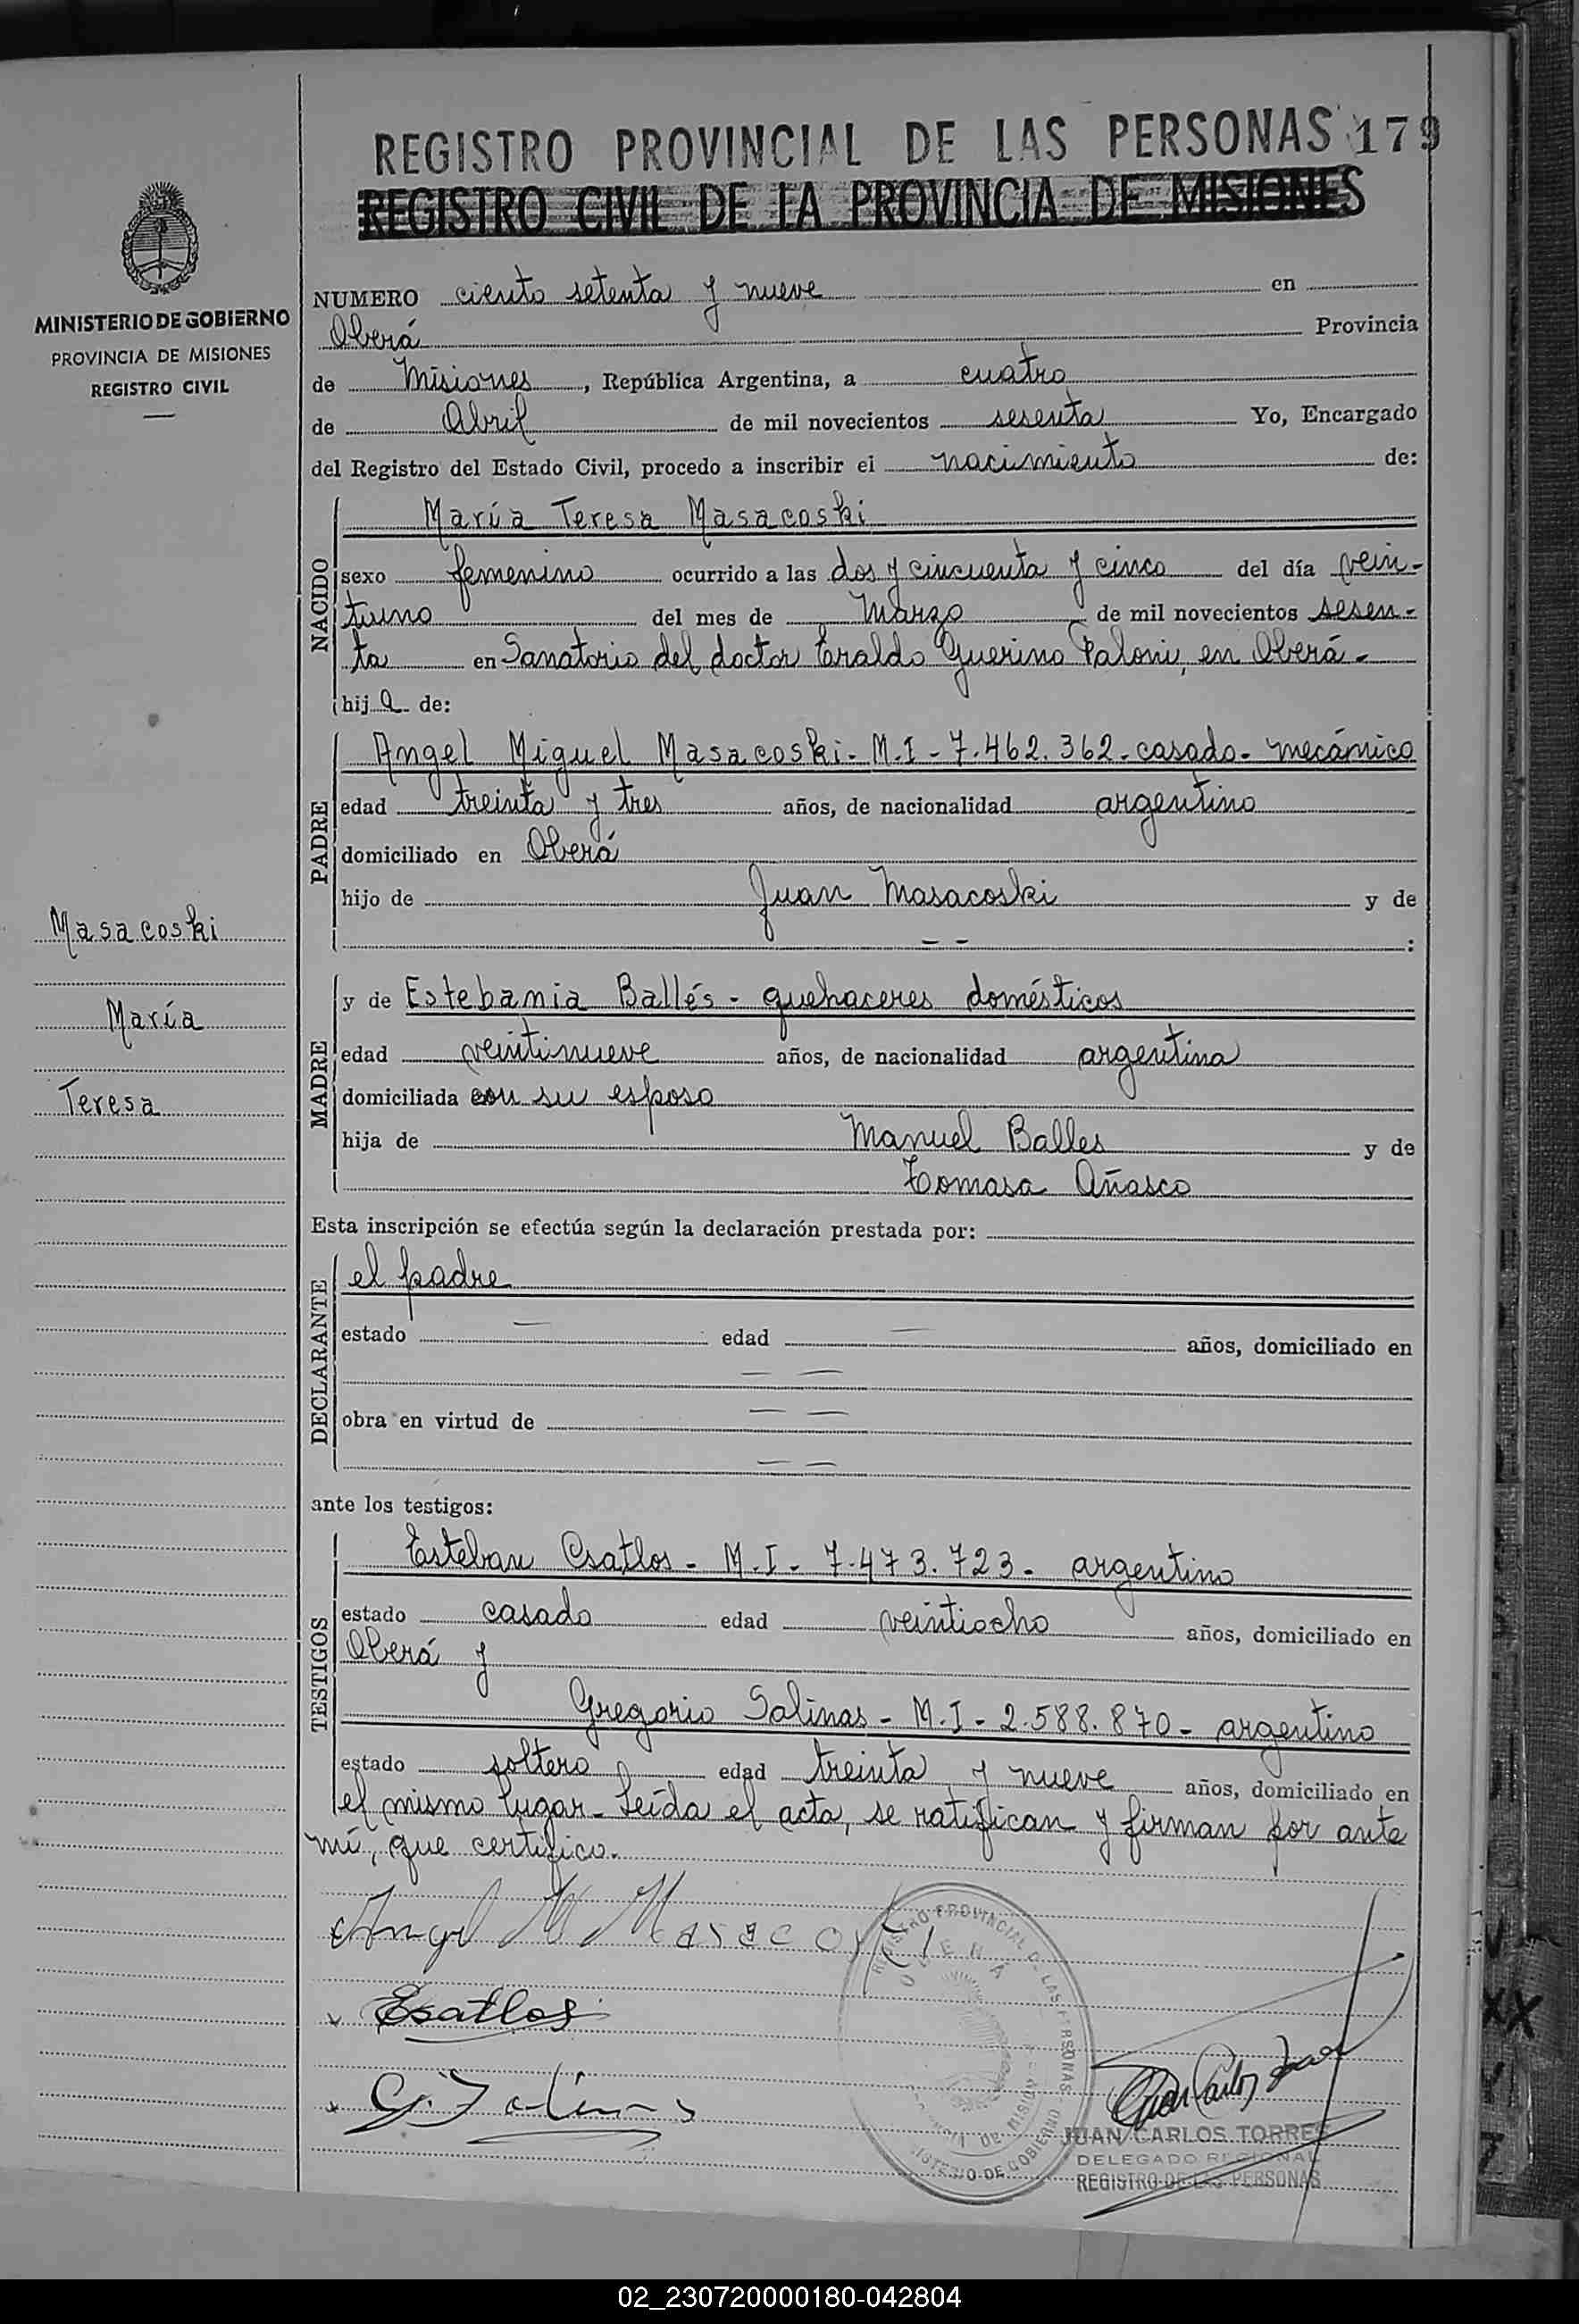 REGISTRO PROVINCIAL DE LAS PERSONAS 179
REGISTRO CIVIL DE LA PROVINCIA DE MISIONES
MINISTERIO DE GOBIERNO
PROVINCIA DE MISIONES
REGISTRO CIVIL
NUMERO ciento setenta y nueve en
Oberá Provincia
de Misiones, República Argentina, a cuatro
de Abril de mil novecientos sesenta Yo, Encargado
del Registro del Estado Civil, procedo a inscribir el nacimiento de:
NACIDO
María Teresa Masacoski
sexo femenino ocurrido a las dos y cincuenta y cinco del día vein-
tiuno del mes de Marzo de mil novecientos sesen-
ta en Sanatorio del doctor Eraldo Guerino Paloni, en Oberá.-
hija de:
PADRE
Angel Miguel Masacoski - M.I - 7.462.362 - casado - mecánico
edad treinta y tres años, de nacionalidad argentino
domiciliado en Oberá
hijo de Juan Masacoski y de
- - :
MADRE
y de Estebania Ballés - quehaceres domésticos
edad veintinueve años, de nacionalidad argentina
domiciliada con su esposo
hija de Manuel Balles y de
Tomasa Añasco
Masacoski
María
Teresa
Esta inscripción se efectúa según la declaración prestada por:
DECLARANTE
el padre
estado — edad — años, domiciliado en
— —
obra en virtud de — —
— —
ante los testigos:
TESTIGOS
Esteban Csatlos - M.I - 7.473.723 - argentino
estado casado edad veintiocho años, domiciliado en
Oberá y
Gregorio Salinas - M.I - 2.588.870 - argentino
estado soltero edad treinta y nueve años, domiciliado en
el mismo lugar - Leída el acta, se ratifican y firman por ante
mí, que certifico.
Angel M Masacoski
Csatlos
G. Salinas
REGISTRO PROVINCIAL DE LAS PERSONAS
OBERÁ
MINISTERIO DE GOBIERNO
JUAN CARLOS TORRES
DELEGADO REGIONAL
REGISTRO DE LAS PERSONAS
02_230720000180-042804